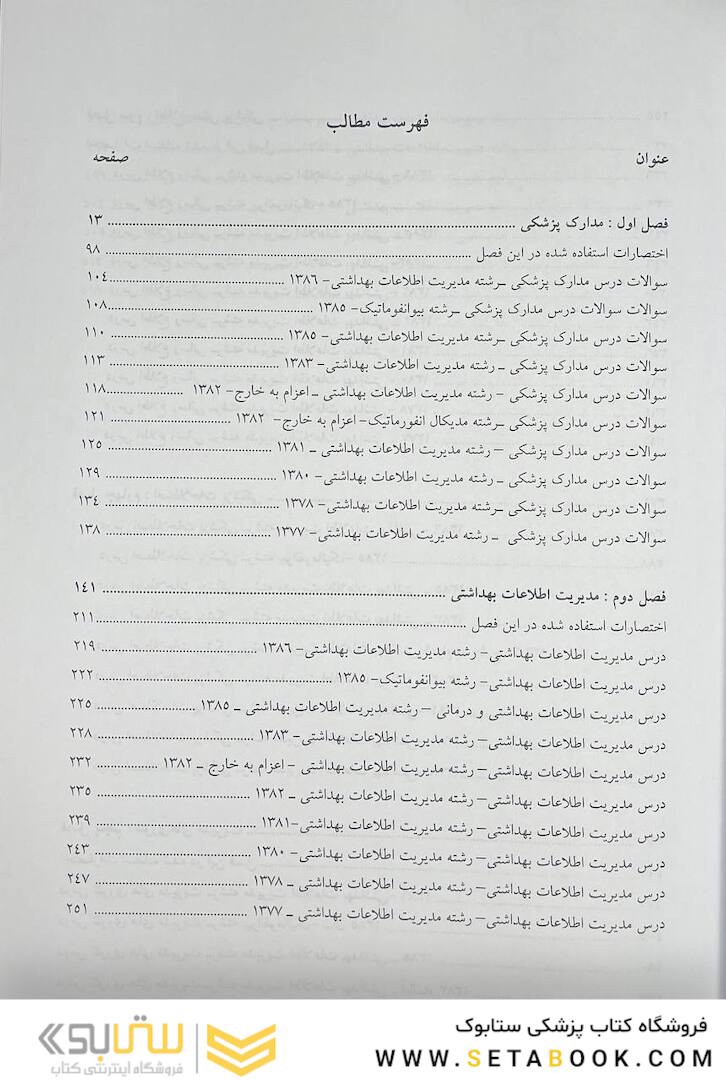 فهرست مطالب
عنوان صفحه
فصل اول : مدارک پزشکی ........ ۱۳
اختصارات استفاده شده در این فصل ........ ۹۸
سوالات درس مدارک پزشکی –رشته مدیریت اطلاعات بهداشتی- ۱۳۸۶ ........ ۱۰۴
سوالات سوالات درس مدارک پزشکی –رشته بیوانفوماتیک- ۱۳۸۵ ........ ۱۰۸
سوالات درس مدارک پزشکی –رشته مدیریت اطلاعات بهداشتی- ۱۳۸۵ ........ ۱۱۰
سوالات درس مدارک پزشکی – رشته مدیریت اطلاعات بهداشتی- ۱۳۸۳ ........ ۱۱۳
سوالات درس مدارک پزشکی - رشته مدیریت اطلاعات بهداشتی – اعزام به خارج- ۱۳۸۲ ........ ۱۱۸
سوالات درس مدارک پزشکی –رشته مدیکال انفورماتیک- اعزام به خارج- ۱۳۸۲ ........ ۱۲۱
سوالات درس مدارک پزشکی – رشته مدیریت اطلاعات بهداشتی – ۱۳۸۱ ........ ۱۲۵
سوالات درس مدارک پزشکی – رشته مدیریت اطلاعات بهداشتی- ۱۳۸۰ ........ ۱۲۹
سوالات درس مدارک پزشکی –رشته مدیریت اطلاعات بهداشتی- ۱۳۷۸ ........ ۱۳۴
سوالات درس مدارک پزشکی – رشته مدیریت اطلاعات بهداشتی- ۱۳۷۷ ........ ۱۳۸
فصل دوم : مدیریت اطلاعات بهداشتی ........ ۱۴۱
اختصارات استفاده شده در این فصل ........ ۲۱۱
درس مدیریت اطلاعات بهداشتی- رشته مدیریت اطلاعات بهداشتی- ۱۳۸۶ ........ ۲۱۹
درس مدیریت اطلاعات بهداشتی- رشته بیوانفوماتیک- ۱۳۸۵ ........ ۲۲۲
درس مدیریت اطلاعات بهداشتی و درمانی – رشته مدیریت اطلاعات بهداشتی – ۱۳۸۵ ........ ۲۲۵
درس مدیریت اطلاعات بهداشتی– رشته مدیریت اطلاعات بهداشتی- ۱۳۸۳ ........ ۲۲۸
درس مدیریت اطلاعات بهداشتی– رشته مدیریت اطلاعات بهداشتی - اعزام به خارج – ۱۳۸۲ ........ ۲۳۲
درس مدیریت اطلاعات بهداشتی– رشته مدیریت اطلاعات بهداشتی – ۱۳۸۲ ........ ۲۳۵
درس مدیریت اطلاعات بهداشتی– رشته مدیریت اطلاعات بهداشتی-۱۳۸۱ ........ ۲۳۹
درس مدیریت اطلاعات بهداشتی– رشته مدیریت اطلاعات بهداشتی- ۱۳۸۰ ........ ۲۴۳
درس مدیریت اطلاعات بهداشتی– رشته مدیریت اطلاعات بهداشتی – ۱۳۷۸ ........ ۲۴۷
درس مدیریت اطلاعات بهداشتی– رشته مدیریت اطلاعات بهداشتی – ۱۳۷۷ ........ ۲۵۱
فروشگاه کتاب پزشکی ستابوک
WWW.SETABOOK.COM
ستابوک
فروشگاه اینترنتی کتاب